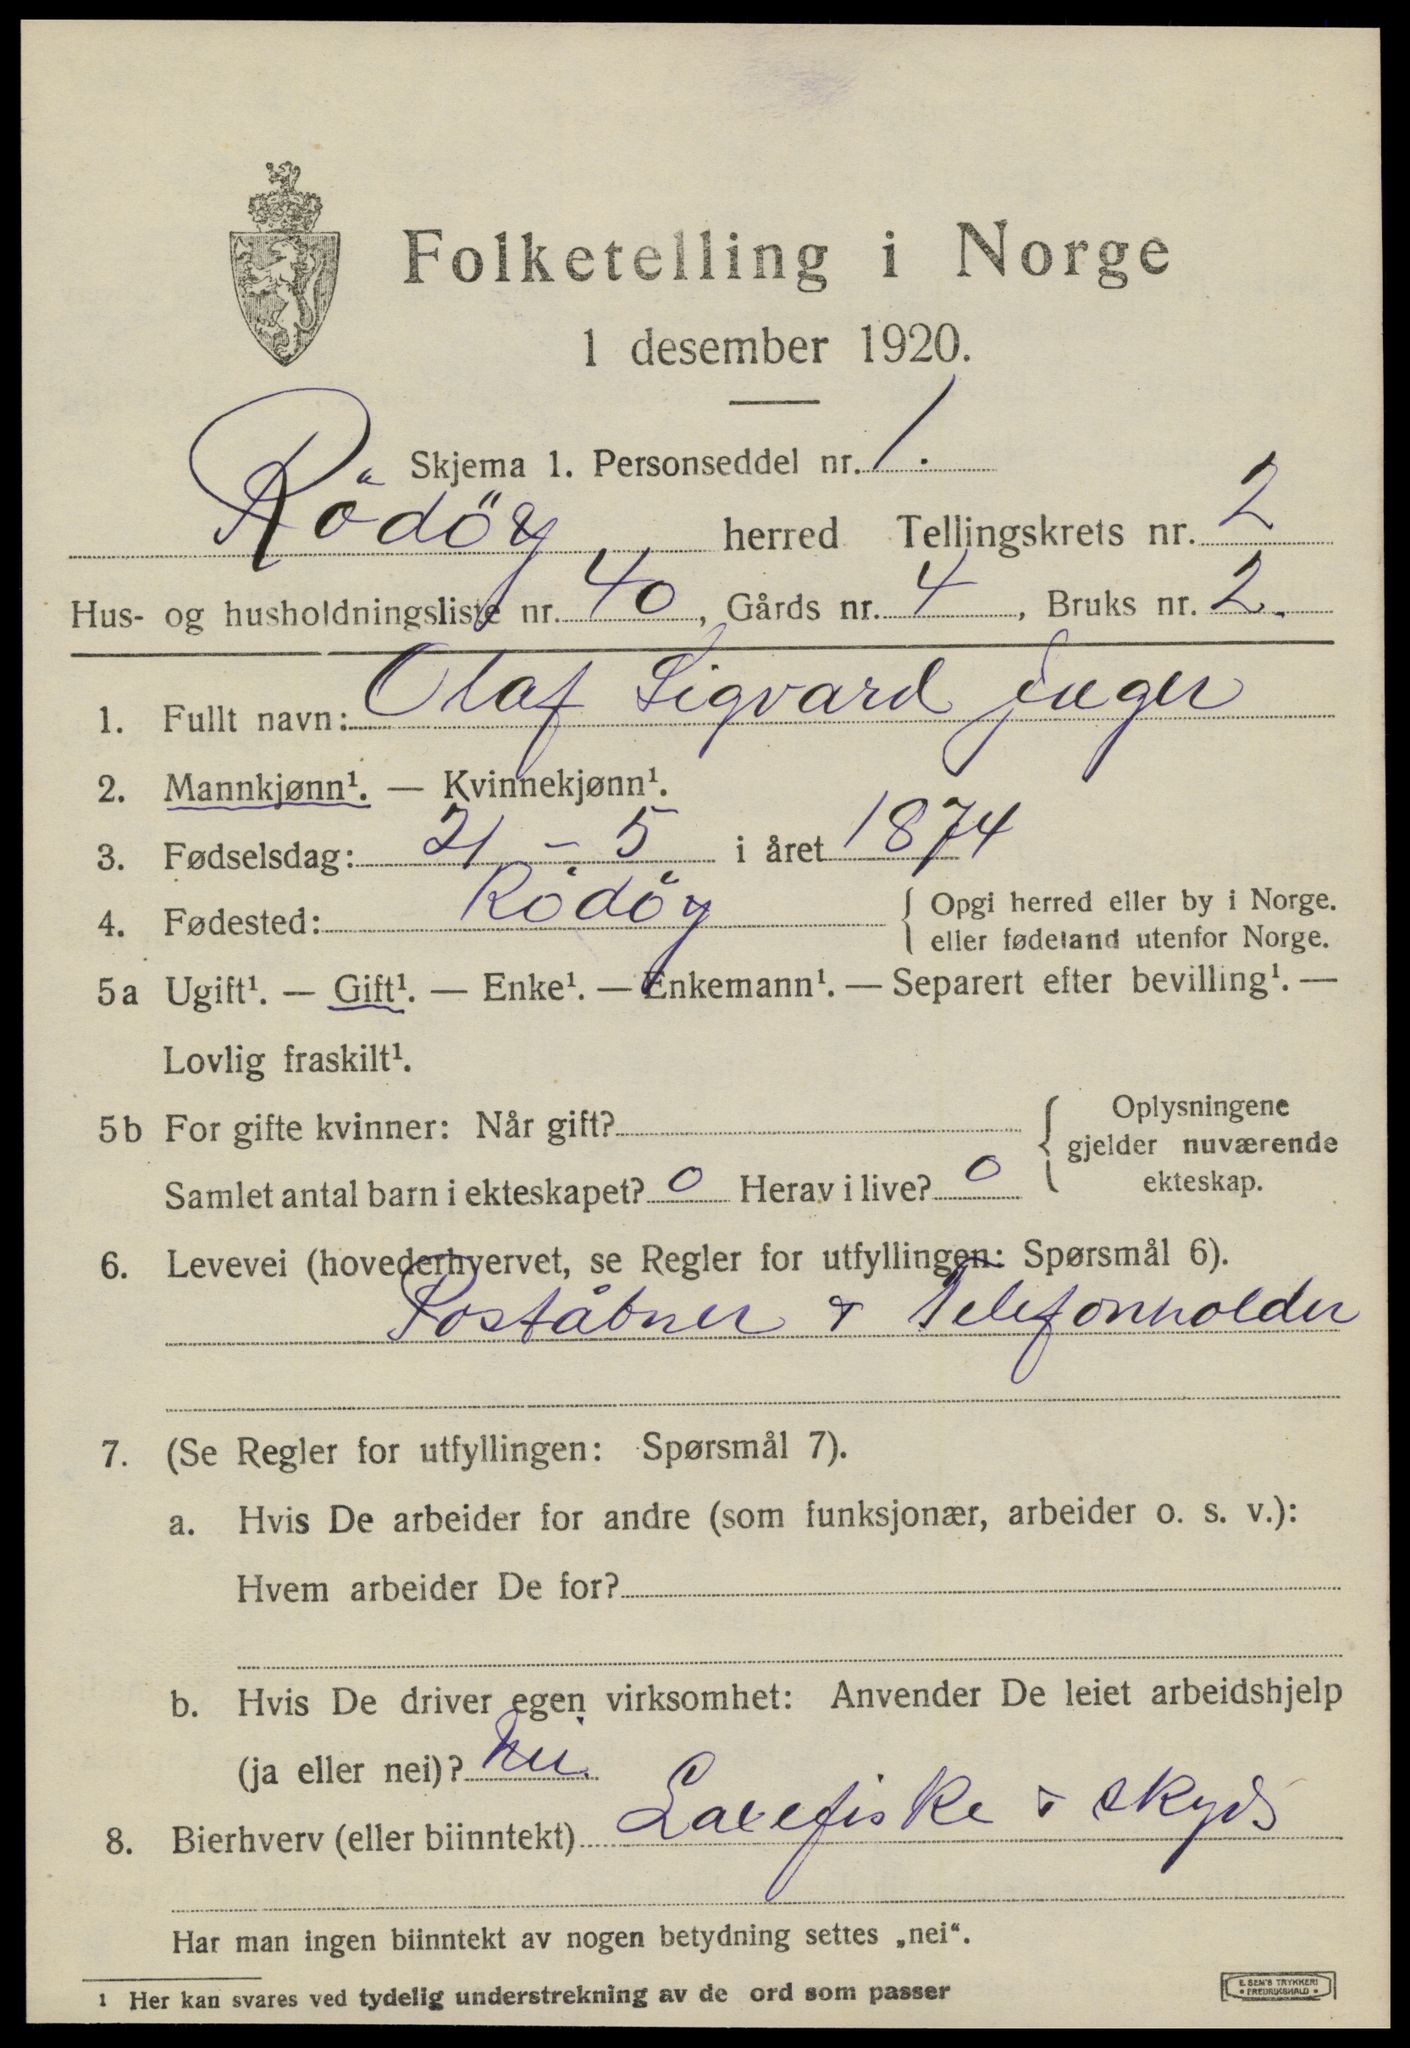 Folketelling i Norge
1 desember 1920.
Skjema 1. Personseddel nr. 1.
Rödöy herred Tellingskrets nr. 2
Hus- og husholdningsliste nr. 40, Gårds nr. 4, Bruks nr. 2.
1. Fullt navn: Olaf Sigvard Jæger
2. Mannkjønn¹. — Kvinnekjønn¹.
3. Fødselsdag: 21 - 5 i året 1874
4. Fødested: Rödöy { Opgi herred eller by i Norge.
eller fødeland utenfor Norge.
5a Ugift¹. — Gift¹. — Enke¹. — Enkemann¹. — Separert efter bevilling¹. —
Lovlig fraskilt¹.
5b For gifte kvinner: Når gift? { Oplysningene
gjelder nuværende
Samlet antal barn i ekteskapet? 0 Herav i live? 0 ekteskap.
6. Levevei (hovederhvervet, se Regler for utfyllingen: Spørsmål 6).
Poståbner & Telefonholder
7. (Se Regler for utfyllingen: Spørsmål 7).
a. Hvis De arbeider for andre (som funksjonær, arbeider o. s. v.):
Hvem arbeider De for?
b. Hvis De driver egen virksomhet: Anvender De leiet arbeidshjelp
(ja eller nei)? Nei.
8. Bierhverv (eller biinntekt) Laxefiske & skyds
Har man ingen biinntekt av nogen betydning settes „nei“.
1 Her kan svares ved tydelig understrekning av de ord som passer
E. SEM'S TRYKKERI
• FREDRIKSHALD •